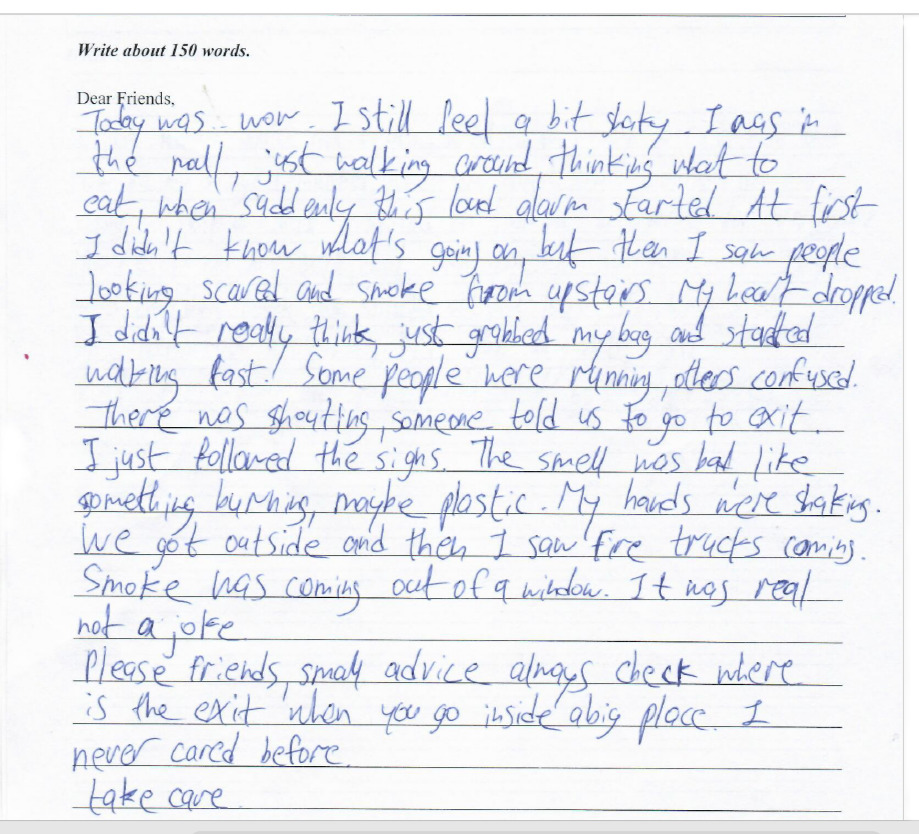 Write about 150 words.
Dear Friends,
Today was.. wow. I still feel a bit shaky. I was in
the mall, just walking around, thinking what to
eat, when suddenly this loud alarm started. At first
I didn't know what's going on, but then I saw people
looking scared and smoke from upstairs. My heart dropped.
I didn't really think, just grabbed my bag and started
walking fast. Some people were running, others confused.
There was shouting, someone told us to go to exit.
I just followed the signs. The smell was bad, like
something burning, maybe plastic. My hands were shaking.
We got outside and then I saw fire trucks coming.
Smoke was coming out of a window. It was real
not a joke
Please friends, small advice always check where
is the exit when you go inside a big place. I
never cared before.
take care